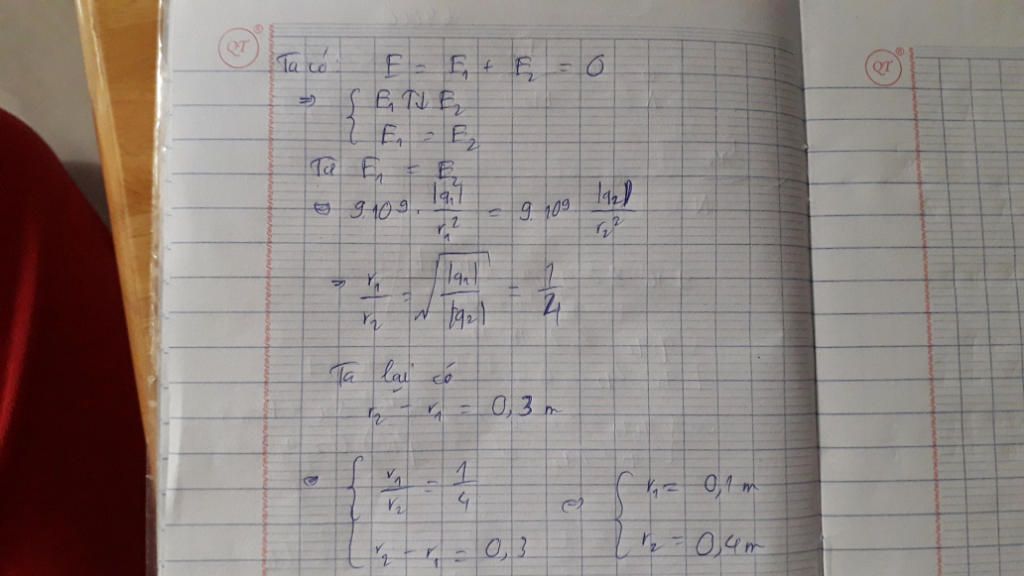 QT®
QT®
Ta có: E = E₁ + E₂ = 0
⇒ { E₁ ↑↓ E₂
E₁ = E₂
Ta E₁ = E₂
⇔ 9.10⁹ · |q₁|/r₁² = 9.10⁹ |q₂|/r₂²
⇒ r₁/r₂ = √(|q₁|/|q₂|) = 1/4
Ta lại có
r₂ - r₁ = 0,3 m
⇔ { r₁/r₂ = 1/4 ⇔ { r₁ = 0,1 m
r₂ - r₁ = 0,3 r₂ = 0,4 m